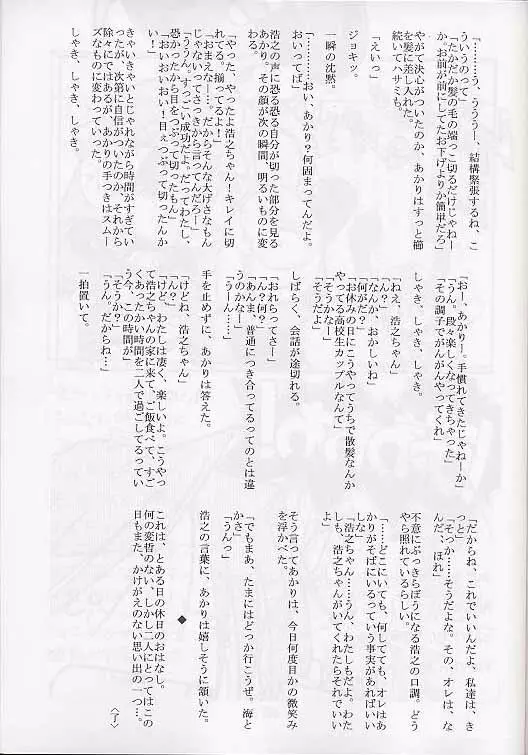 「………う、うううー、結構緊張するね、こ
ういうのって」
「たかだか髪の毛の端っこ切るだけじゃねー
か。お前が前にしてたお下げよりか簡単だろ」
やがて決心がついたのか、あかりはすっと櫛
を髪に差し入れた。
続いてハサミも。
「えいっ」
ジョキッ。
一瞬の沈黙。
「…………おい、あかり？何固まってんだよ。
おいってば」
浩之の声に恐る恐る自分が切った部分を見る
あかり。その顔が次の瞬間、明るいものに変
わる。
「やった、やったよ浩之ちゃん！キレイに切
れてる。揃ってるよ！」
「おまえなー…。だからそんな大げさなもん
じゃないってさっきから言ってんだろー」
「ううん。すっごい成功だよ。だってわたし、
恐かったから目をつぶって切ったもん」
「おいおいおい！目ぇつぶって切ったんか
い！」
きゃいきゃいとじゃれながら時間がすぎてい
ったが、次第に自信がついたのか、それから
徐々にではあるが、あかりの手つきはスムー
ズなものに変わっていった。
しゃき、しゃき、しゃき。
「おー、あかりー。手慣れてきたじゃねーか」
「うん。段々楽しくなってきちゃった」
「その調子でがんがんやってくれ」
しゃき、しゃき、しゃき。
「ねえ、浩之ちゃん」
「ん？」
「なんか、おかしいね」
「何がだ？」
「お休みの日にこうやってうちで散髪なんか
やってる高校生カップルなんて」
「そうかなー」
「そうだよ」
しばらく、会話が途切れる。
「おれらってさー」
「ん？何？」
「あんま、普通につき合ってるってのとは違
うのかなー」
「うーん……」
手を止めずに、あかりは答えた。
「けどね、浩之ちゃん」
「ん？」
「けど、わたしは凄く、楽しいよ。こうやっ
て浩之ちゃんの家に来て、ご飯食べて、すご
くあったかい時間を二人で過ごしてるってい
う今、この時間が」
「そうか？」
「うん。だからね…」
一拍置いて。
「だからね、これでいいんだよ、私達は、き
っと」
「そっか……そうだよな。その、オレは、な
んだ、ほれ」
不意にぶっきらぼうになる浩之の口調。どう
やら照れているらしい。
「……どこにいても、何してても、オレはあ
かりがそばにいるっていう事実があればいい
しな」
「浩之ちゃん……うん、わたしもだよ。わた
しも、浩之ちゃんがいてくれたらそれでいい
よ」
そう言ってあかりは、今日何度目かの微笑み
を浮かべた。
「でもまあ、たまにはどっか行こうぜ、海と
かさ」
「うんっ」
浩之の言葉に、あかりは嬉しそうに頷いた。
◆
これは、とある日の休日のおはなし。
何の変哲のない、しかし二人にとってはこの
日もまた、かけがえのない思い出の一つ…。
〈了〉